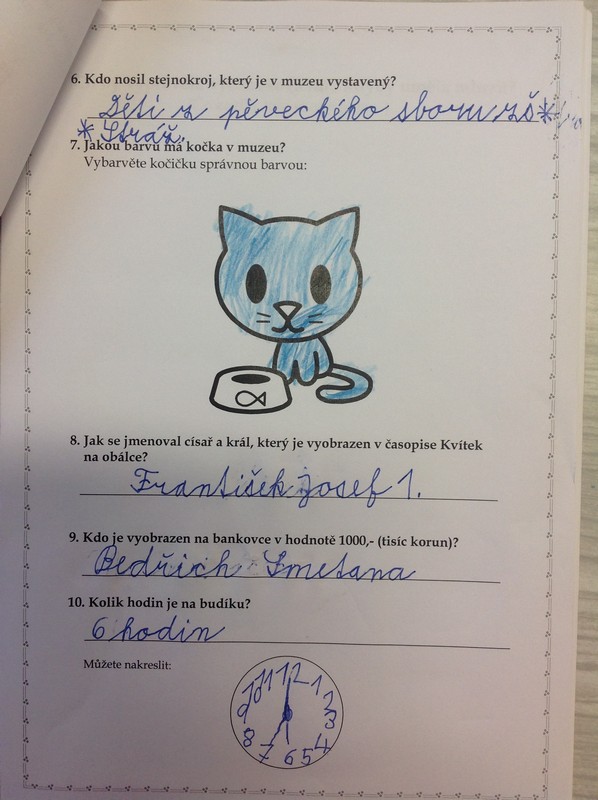 6. Kdo nosil stejnokroj, který je v muzeu vystavený?
Děti z pěveckého sboru ZŠ *
* Stráž.
7. Jakou barvu má kočka v muzeu?
Vybarvěte kočičku správnou barvou:
8. Jak se jmenoval císař a král, který je vyobrazen v časopise Kvítek
na obálce?
František Josef 1.
9. Kdo je vyobrazen na bankovce v hodnotě 1000,- (tisíc korun)?
Bedřich Smetana
10. Kolik hodin je na budíku?
6 hodin
Můžete nakreslit:
12
11
1
10
2
9
3
8
4
7
6
5